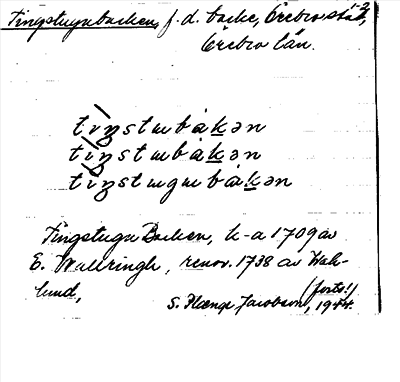 Tingstugubacken, f. d. backe, Örebro stad, 1-2
Örebro län.
tiŋstɯbàkən
tiŋstɯbàkən
tiŋstɯgɯbàkən
Tingstugu Backen, k-a 1709 av
E. Wallringh, renov. 1738 av Wah-
lund,
(forts!)
S. Hænge Jacobson, 1944.